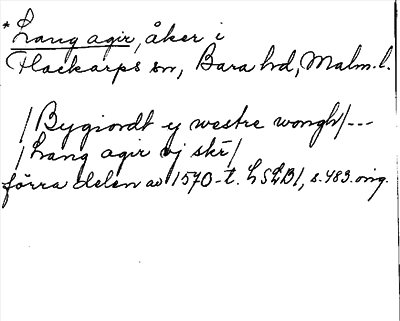 * Lang agir, åker i
Flackarps sn, Bara hd, Malm. l.
/Bygiordt ej westre wongh/---
/Lang agir vj skr/
förra delen av 1570-t. LSLB1, s. 483. orig.